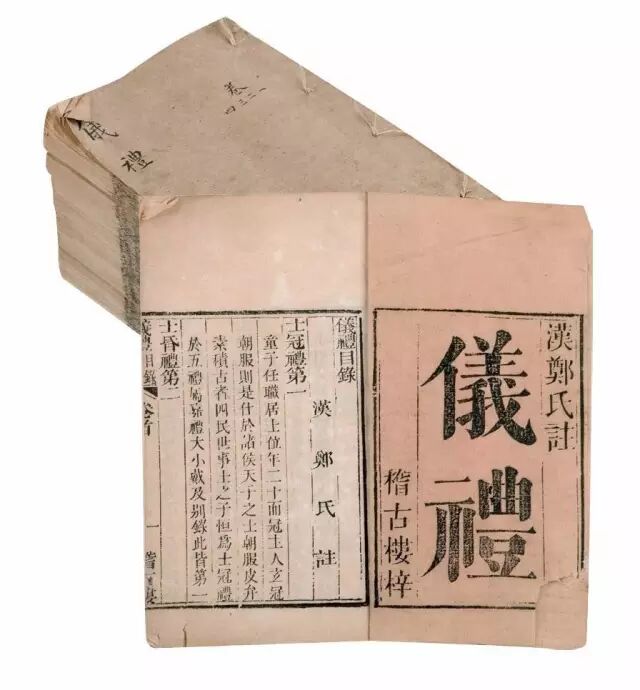 儀禮
卷
一
二
三
四
漢鄭氏註
儀禮
稽古樓梓
儀禮目錄
漢鄭氏註
士冠禮第一
童子任職居士位年二十而冠主人玄冠
朝服則是仕於諸侯天子之士朝服皮弁
素積古者四民世事士之子恒爲士冠禮
於五禮屬嘉禮大小戴及别錄此皆第一
士昏禮第二
儀禮目錄 卷首 一